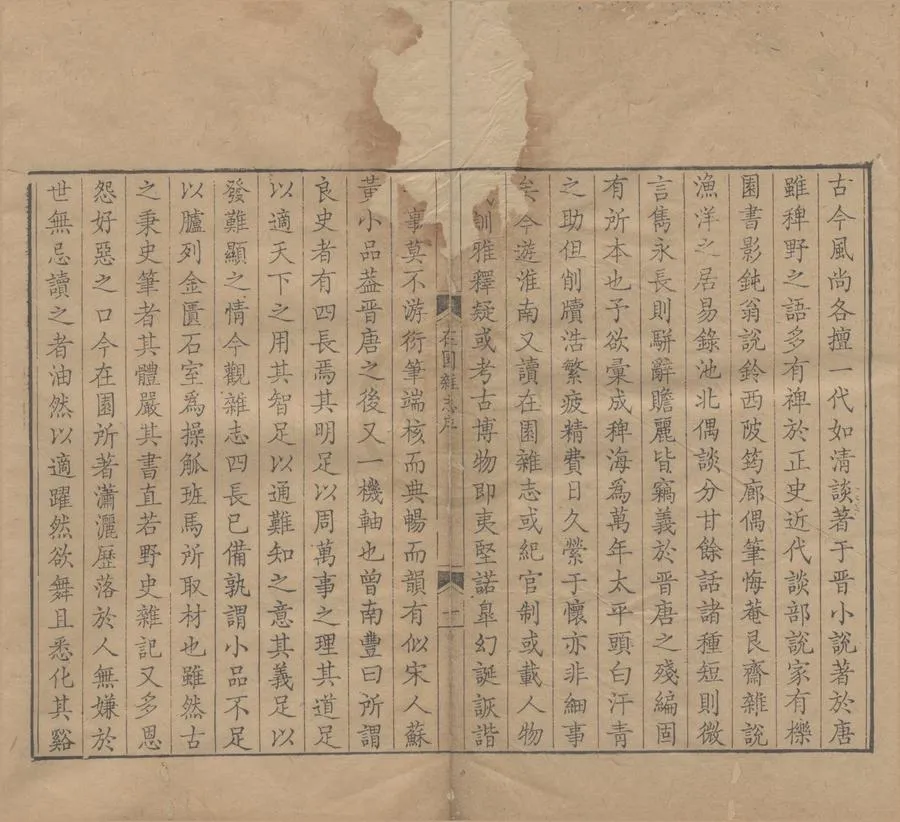 古今風尚各擅一代如清談著于晋小說著於唐
雖稗野之語多有禆於正史近代談部說家有櫟
園書影鈍翁說鈴西陂筠廊偶筆悔菴艮齋雜說
漁洋之居易錄池北偶談分甘餘話諸種短則微
言雋永長則駢辭贍麗皆竊義於晉唐之殘編固
有所本也予欲彙成稗海為萬年太平頭白汗青
之助但削牘浩繁疲精費日久縈于懷亦非細事
矣今遊淮南又讀在園雜志或紀官制或載人物
訓雅釋疑或考古博物即夷堅諾皐幻誕詼諧
在園雜志序
事莫不游衍筆端核而典暢而韻有似宋人蘇
黃小品葢晋唐之後又一機軸也曾南豐曰所謂
良史者有四長焉其明足以周萬事之理其道足
以適天下之用其智足以通難知之意其義足以
發難顯之情今觀雜志四長已備孰謂小品不足
以臚列金匱石室為操觚班馬所取材也雖然古
之秉史筆者其體嚴其書直若野史雜記又多恩
怨好惡之口今在園所著瀟灑歷落於人無嫌於
世無忌讀之者油然以適躍然欲舞且悉化其谿